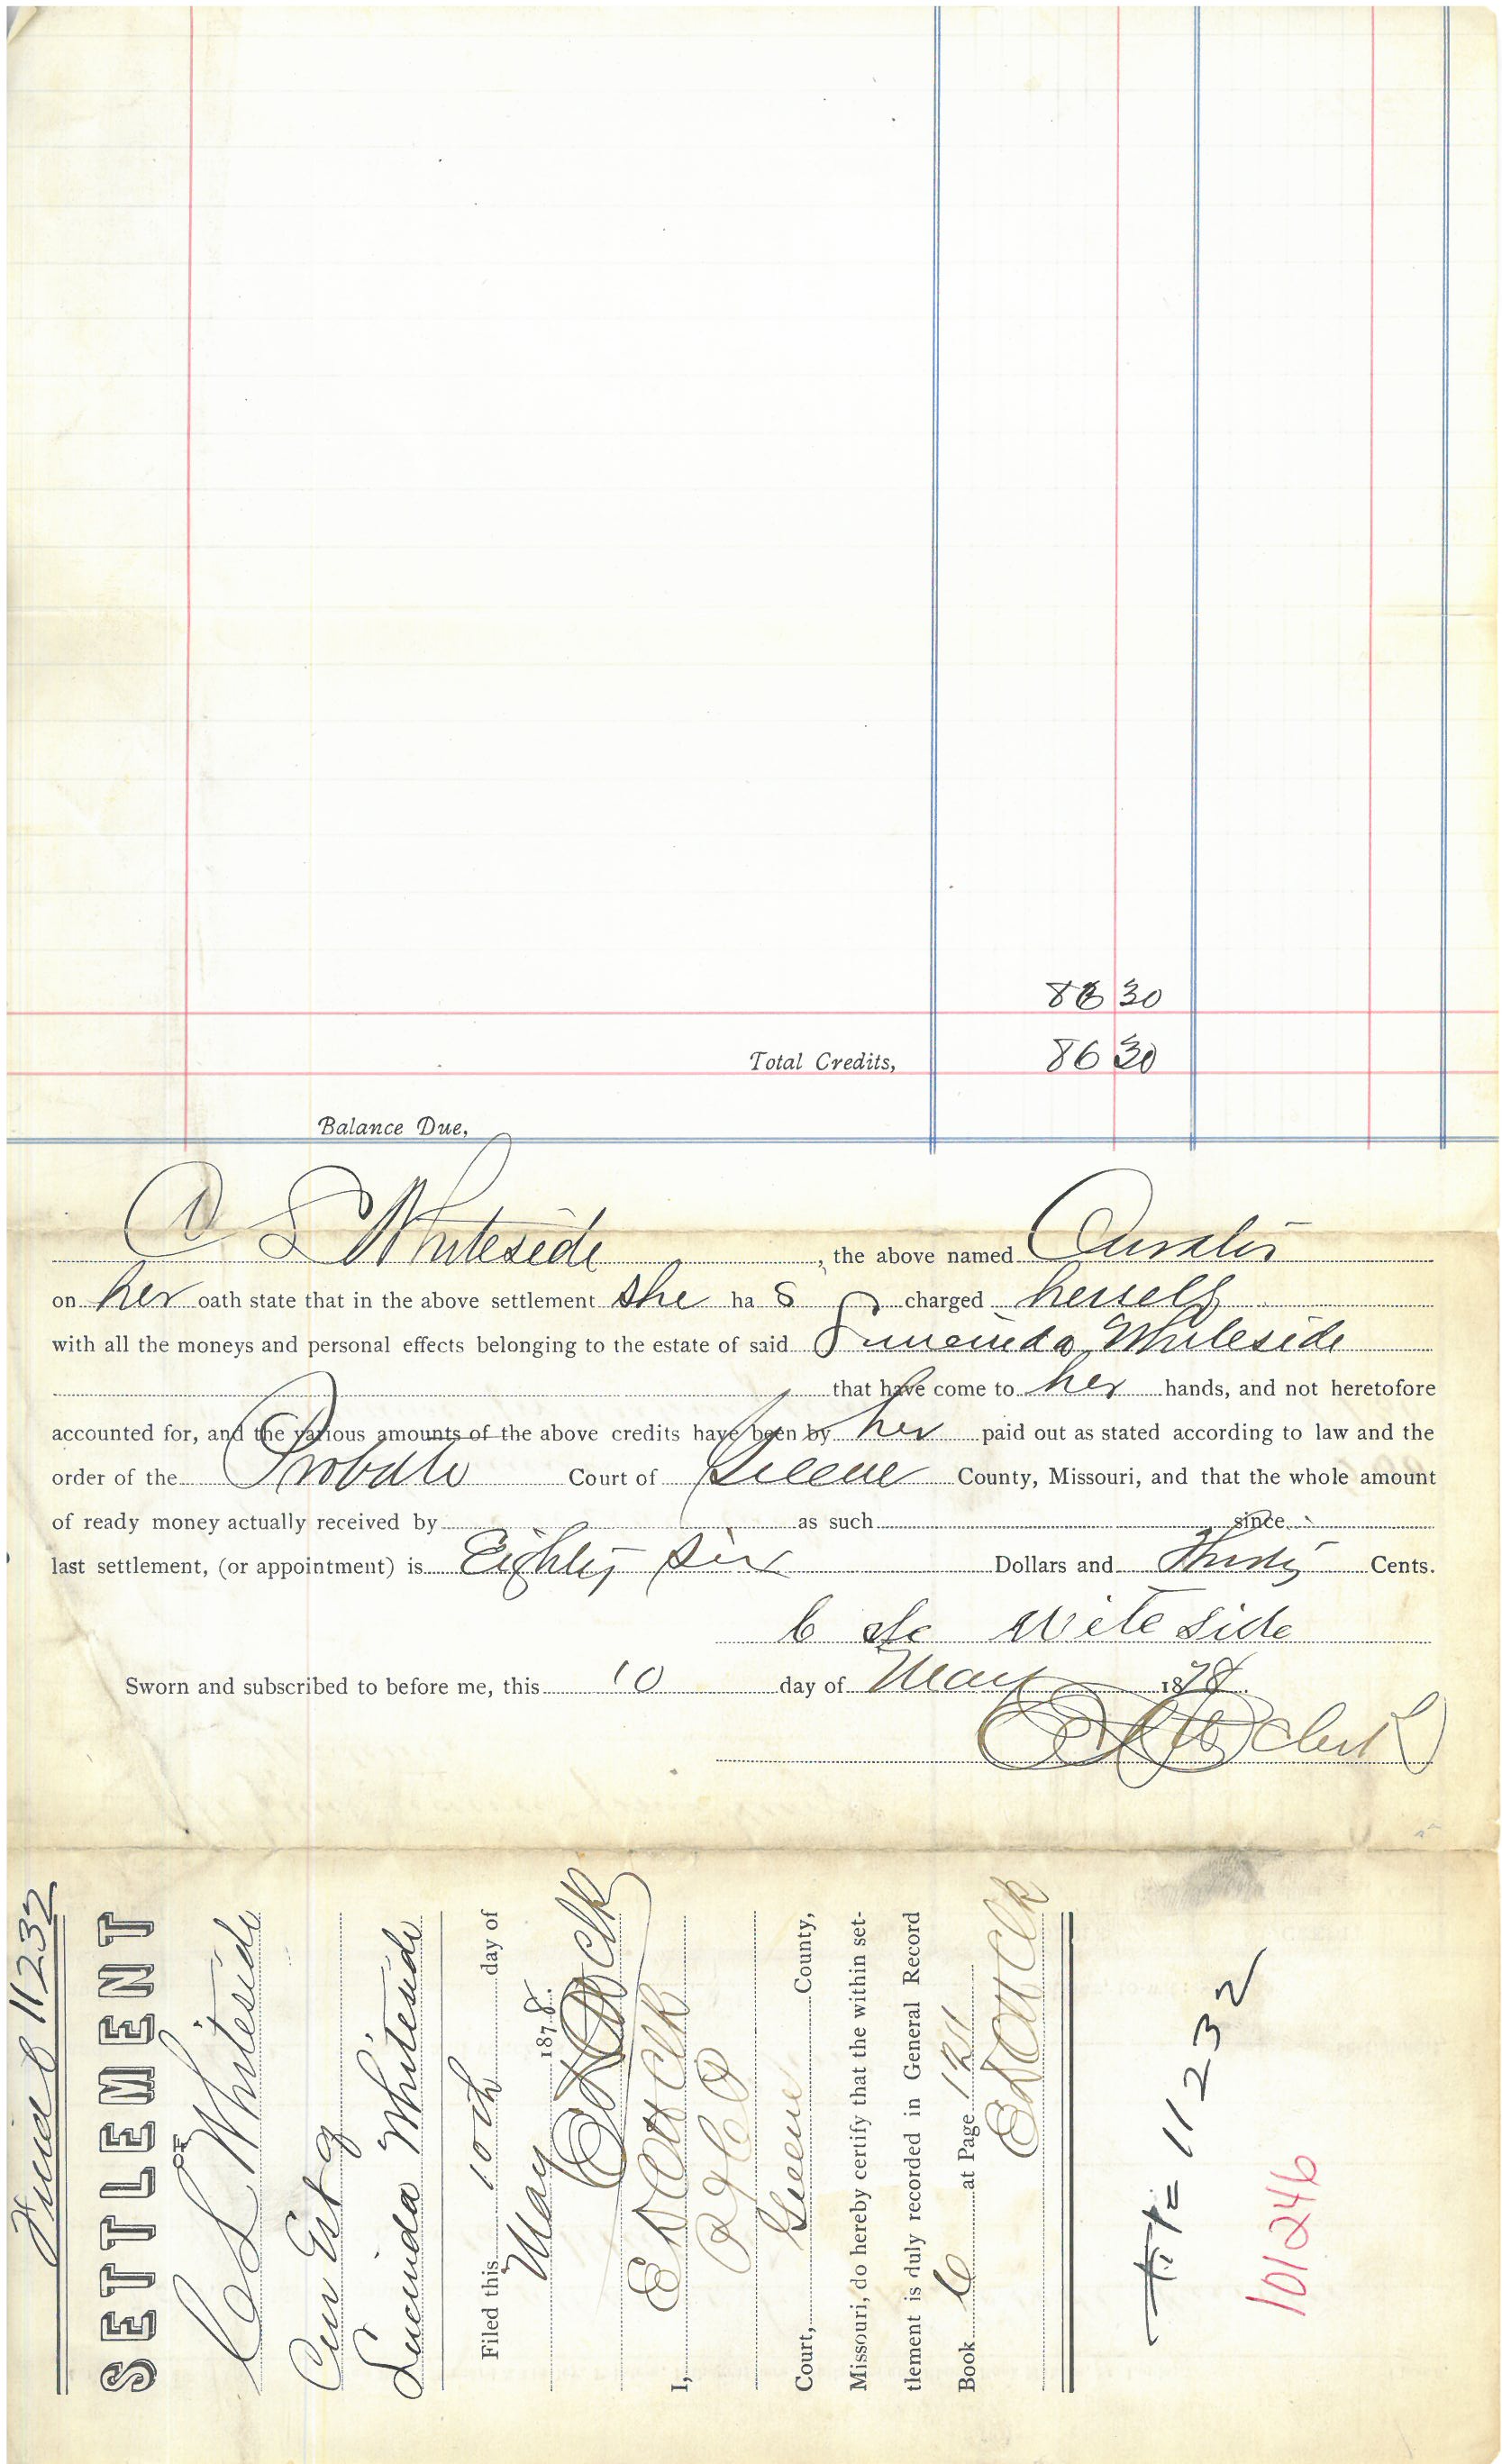 86 30
Total Credits, 86 30
Balance Due,
C S Whiteside , the above named Curator
on her oath state that in the above settlement she ha s charged herself
with all the moneys and personal effects belonging to the estate of said Whiteside
that have come to her hands, and not heretofore
accounted for, and the various amounts of the above credits have been by her paid out as stated according to law and the
order of the Probate Court of Greene County, Missouri, and that the whole amount
of ready money actually received by as such since
last settlement, (or appointment) is Eighty Six Dollars and Thirty Cents.
Wite Side
Sworn and subscribed to before me, this 10 day of May 1878.
Clerk
11232
SETTLEMENT
OF
C S Whiteside
Cur Est of
Lucinda Whiteside
Filed this 10th day of
May 1878.
Clk
I, E D Ott Clk
Court, Greene County,
Missouri, do hereby certify that the within set-
tlement is duly recorded in General Record
Book C at Page 121
E D Ott Clk
# 11232
101246